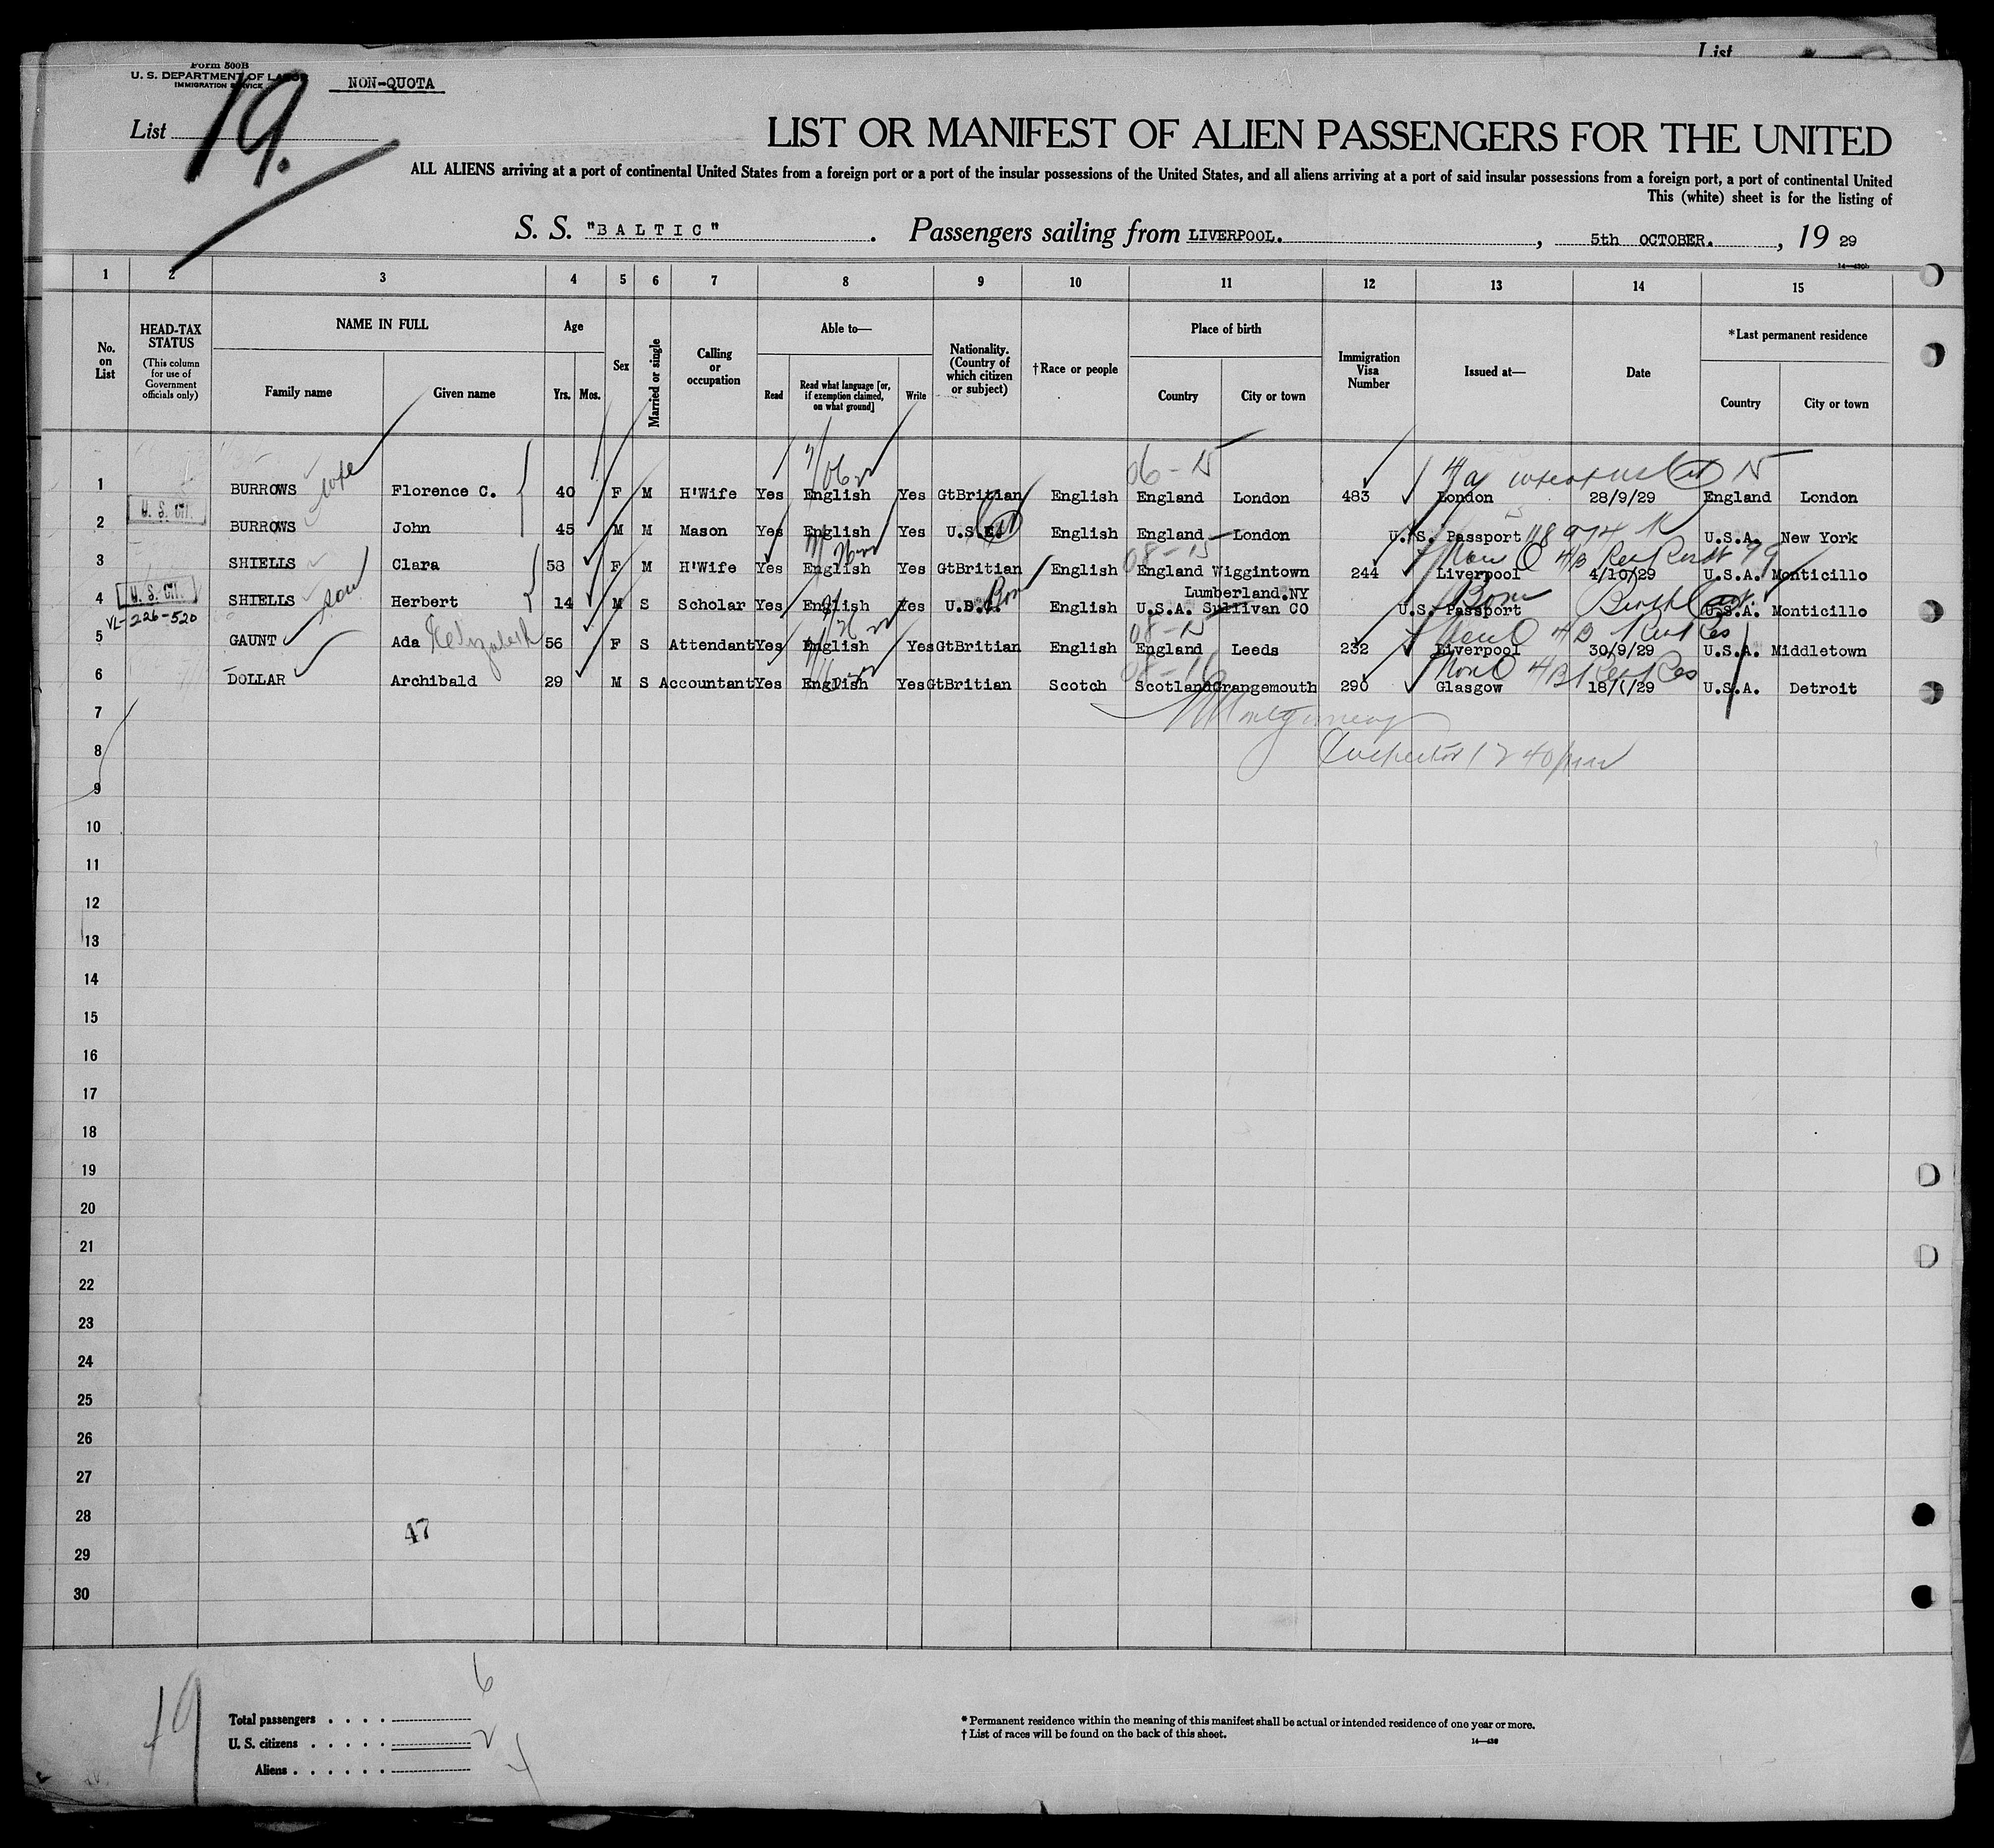 List
Form 500B
U. S. DEPARTMENT OF LABOR
IMMIGRATION SERVICE
NON-QUOTA
List 19.
LIST OR MANIFEST OF ALIEN PASSENGERS FOR THE UNITED
ALL ALIENS arriving at a port of continental United States from a foreign port or a port of the insular possessions of the United States, and all aliens arriving at a port of said insular possessions from a foreign port, a port of continental United
This (white) sheet is for the listing of
S. S. "BALTIC". Passengers sailing from LIVERPOOL., 5th OCTOBER., 19 29
14—430b
1 2 3 4 5 6 7 8 9 10 11 12 13 14 15
No. on List
HEAD-TAX STATUS
(This column for use of Government officials only)
NAME IN FULL
Family name
Given name
Age
Yrs. Mos.
Sex
Married or single
Calling or occupation
Able to—
Read
Read what language [or, if exemption claimed, on what ground]
Write
Nationality. (Country of which citizen or subject)
†Race or people
Place of birth
Country
City or town
Immigration Visa Number
Issued at—
Date
*Last permanent residence
Country
City or town
06-15
1 BURROWS wife Florence C. 40 F M H'Wife Yes English Yes GtBritian English England London 483 London 28/9/29 England London
U. S. CIT.
2 BURROWS John 45 M M Mason Yes English Yes U.S. English England London U.S. Passport 118974 U.S.A. New York
08-15
3 SHIELLS Clara 53 F M H'Wife Yes English Yes GtBritian English England Wiggintown 244 Liverpool 4/10/29 U.S.A. Monticillo
U. S. CIT.
Lumberland.NY
4 SHIELLS son Herbert 14 M S Scholar Yes English Yes Born English U.S.A. Sullivan CO U.S. Passport Born Birth U.S.A. Monticillo
VL-226-520
08-15
5 GAUNT Ada Elizabeth 56 F S Attendant Yes English Yes GtBritian English England Leeds 232 Liverpool 30/9/29 U.S.A. Middletown
08-16
6 DOLLAR Archibald 29 M S Accountant Yes English Yes GtBritian Scotch Scotland Grangemouth 290 Glasgow U.S.A. Detroit
7 Montgomery
8 Inspector 1240pm
9
10
11
12
13
14
15
16
17
18
19
20
21
22
23
24
25
26
27
28
47
29
30
19
Total passengers . . . . 6
U. S. citizens . . . . . 2
Aliens . . . . . . 4
* Permanent residence within the meaning of this manifest shall be actual or intended residence of one year or more.
† List of races will be found on the back of this sheet.
14—430